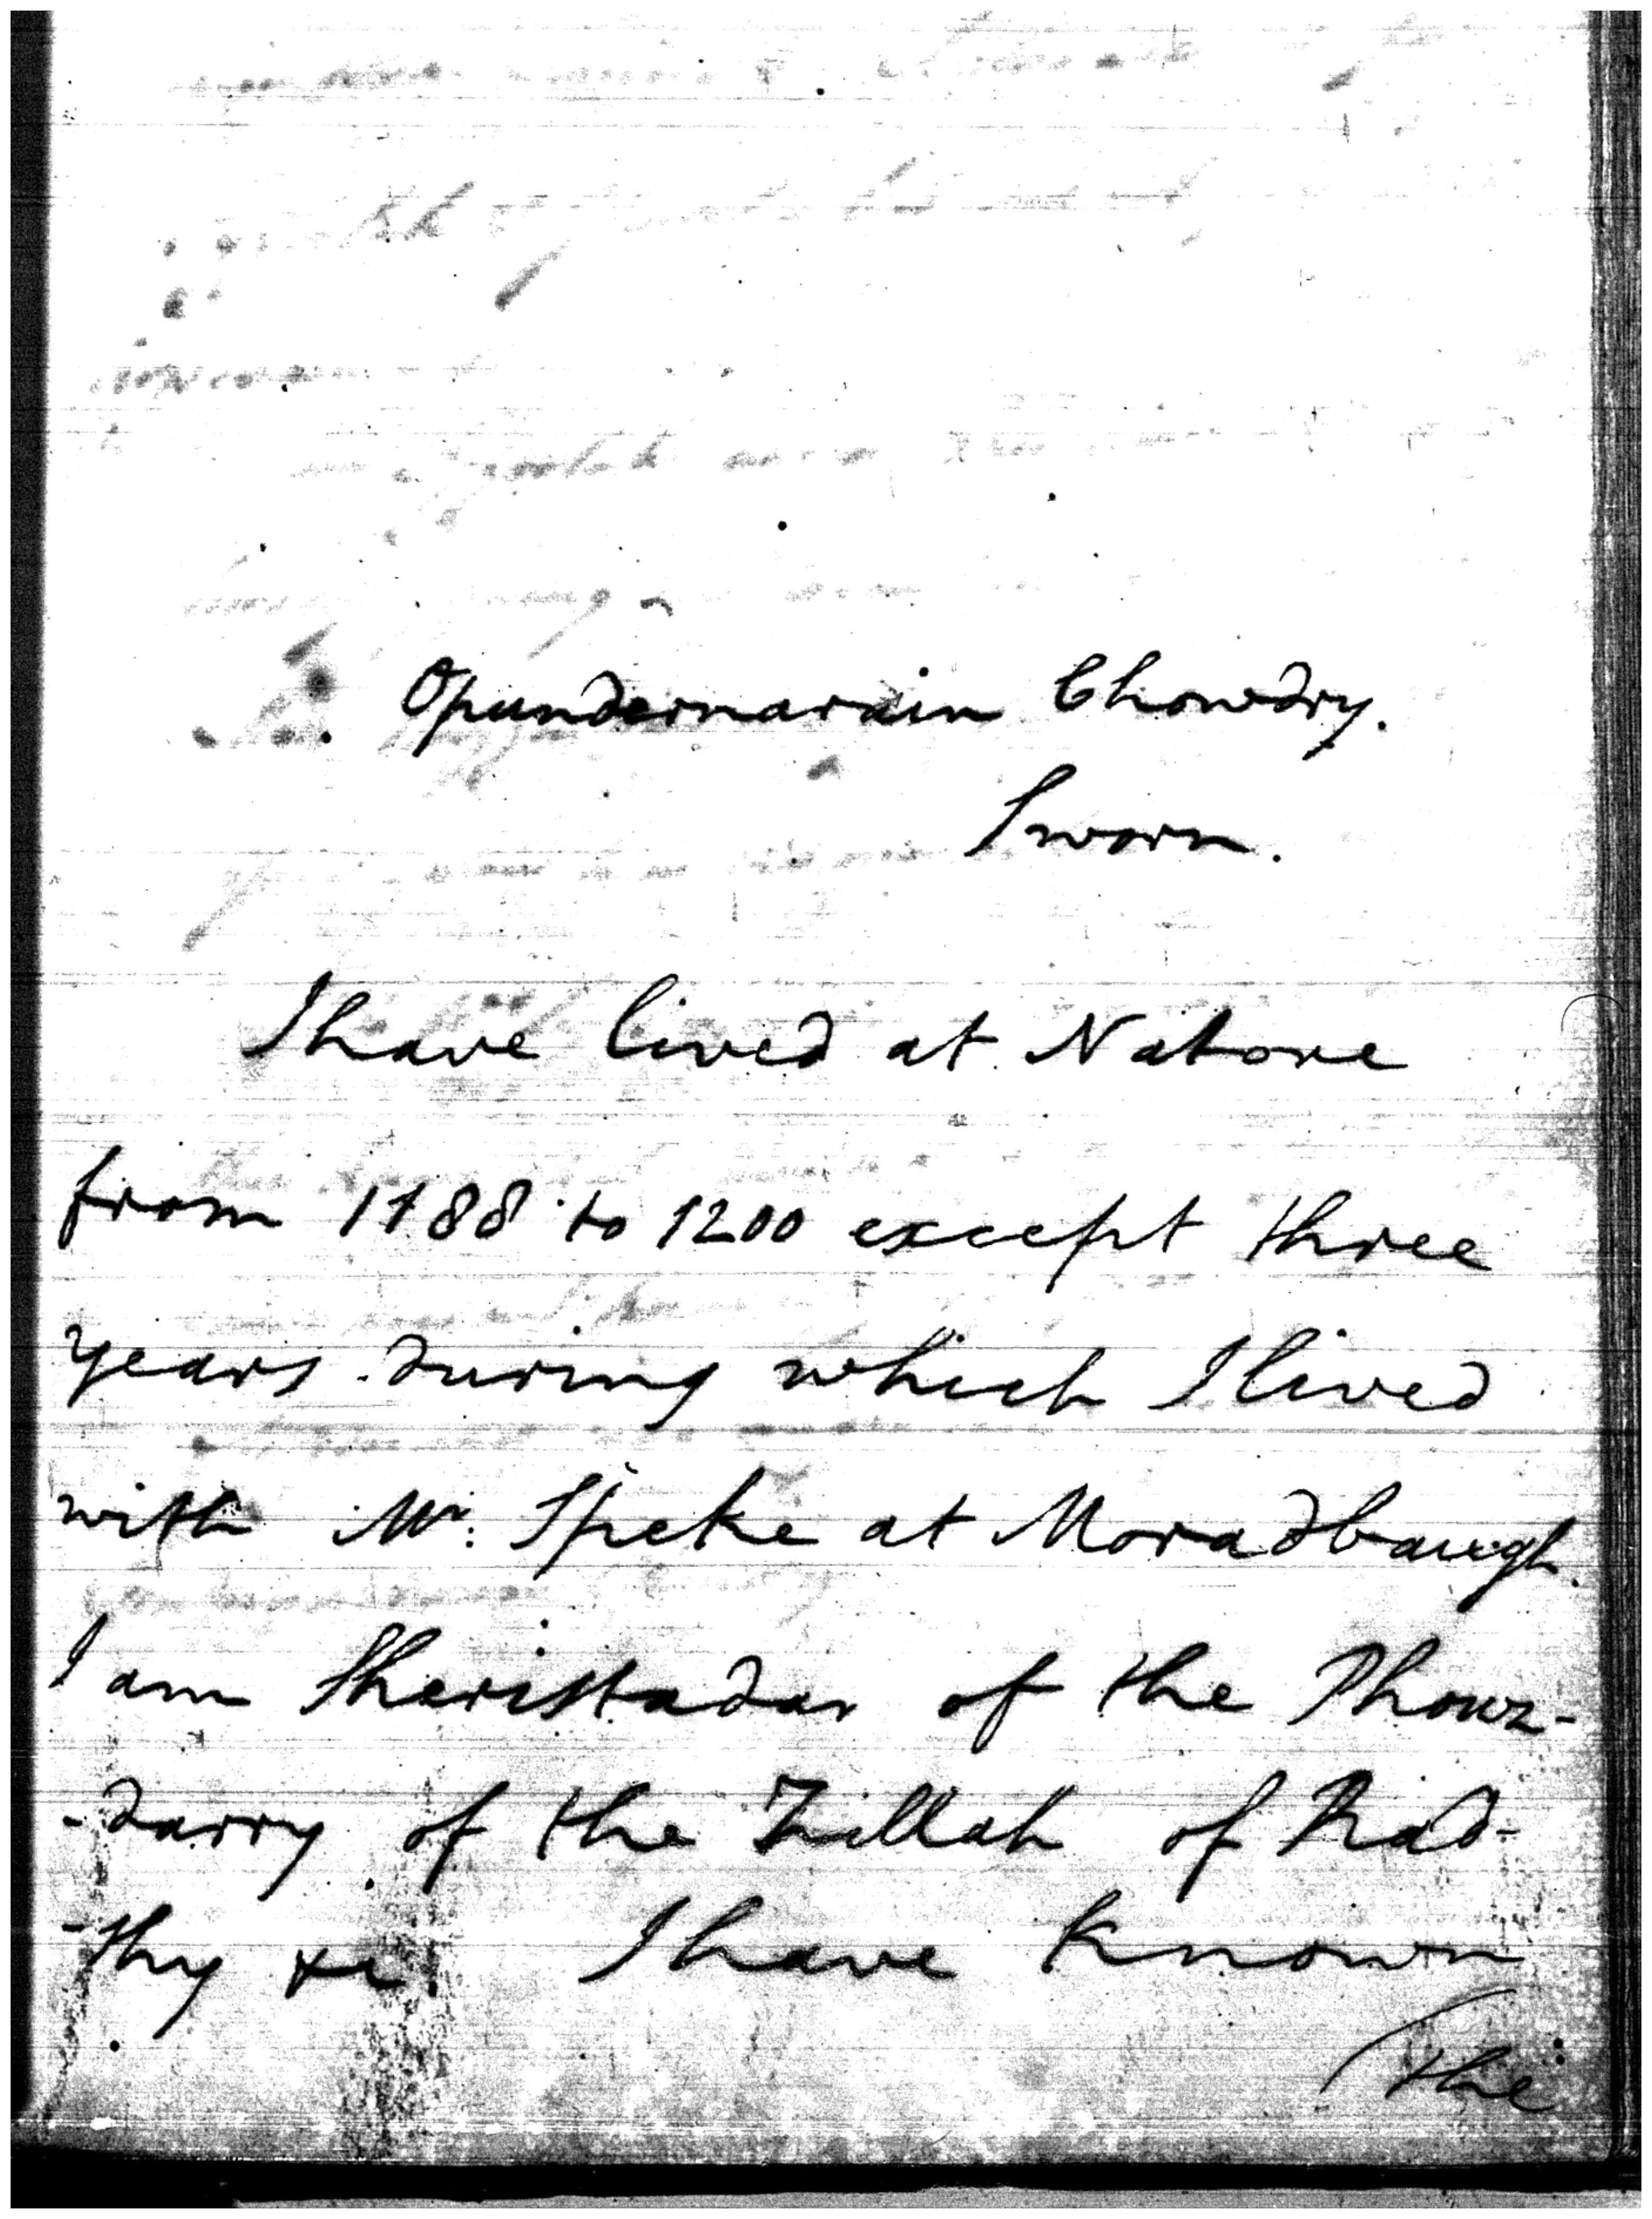 Opundernarain Chowdry.
Sworn.
I have lived at Natore
from 1188 to 1200 except three
years during which I lived
with Mr. Speke at Moradbaugh.
I am Sheristadar of the Phouz-
-darry of the Zillah of Rad-
-shy &c. I have known
(the